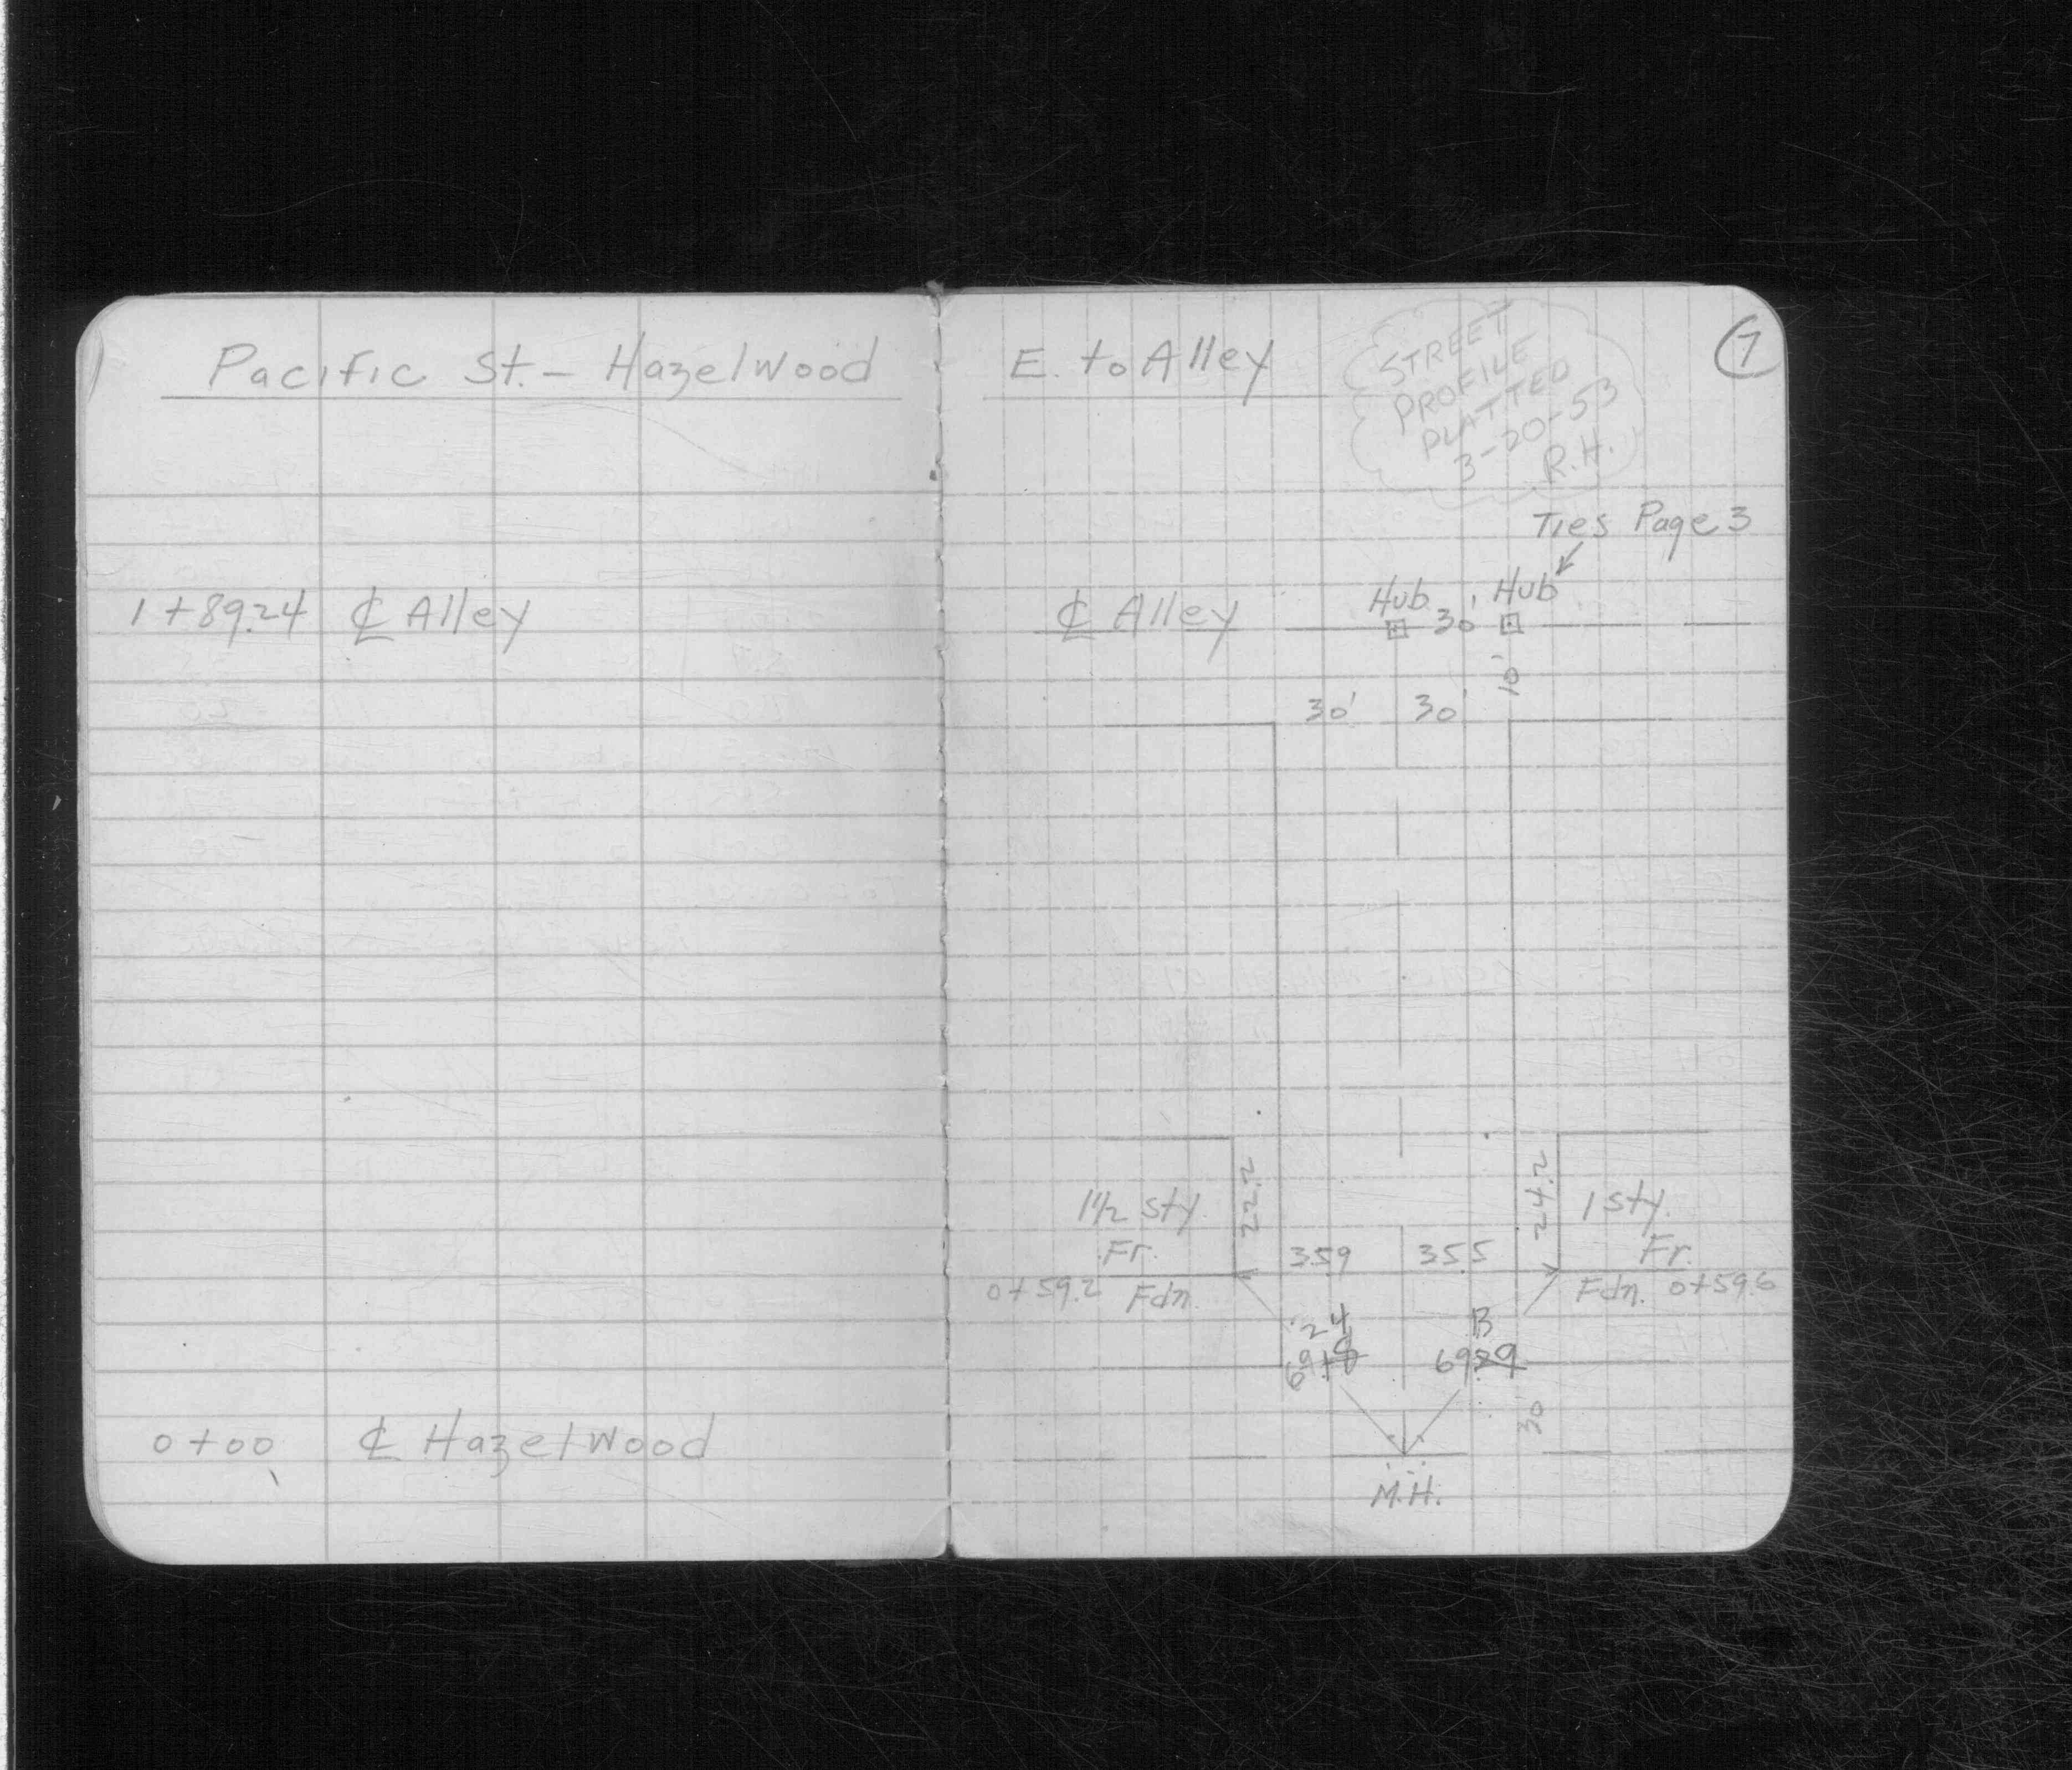 Pacific St. - Hazelwood
1+89.24 ℄ Alley
0+00 ℄ Hazelwood
E. to Alley
STREET
PROFILE
PLATTED
3-20-53
R.H.
7
Ties Page 3
Hub Hub
℄ Alley 30'
10'
30' 30'
22.2
24.2
1 1/2 sty.
Fr.
0+59.2 Fdn.
35.9 35.5
1 sty.
Fr.
Fdn. 0+59.6
24
13
69
69
30
M.H.